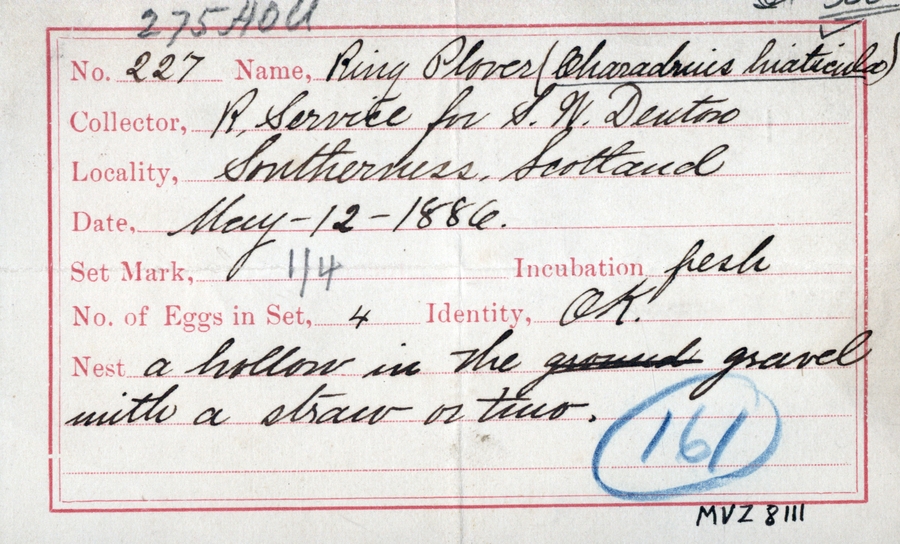 275 AOU
No. 227 Name, Ring Plover (Charadrius hiaticula)
Collector, R. Service for S. W. Denton
Locality, Southerness, Scotland
Date, May-12-1886.
Set Mark, 1/4 Incubation fresh
No. of Eggs in Set, 4 Identity, OK.
Nest a hollow in the ground gravel
with a straw or two.
161
MVZ 8111